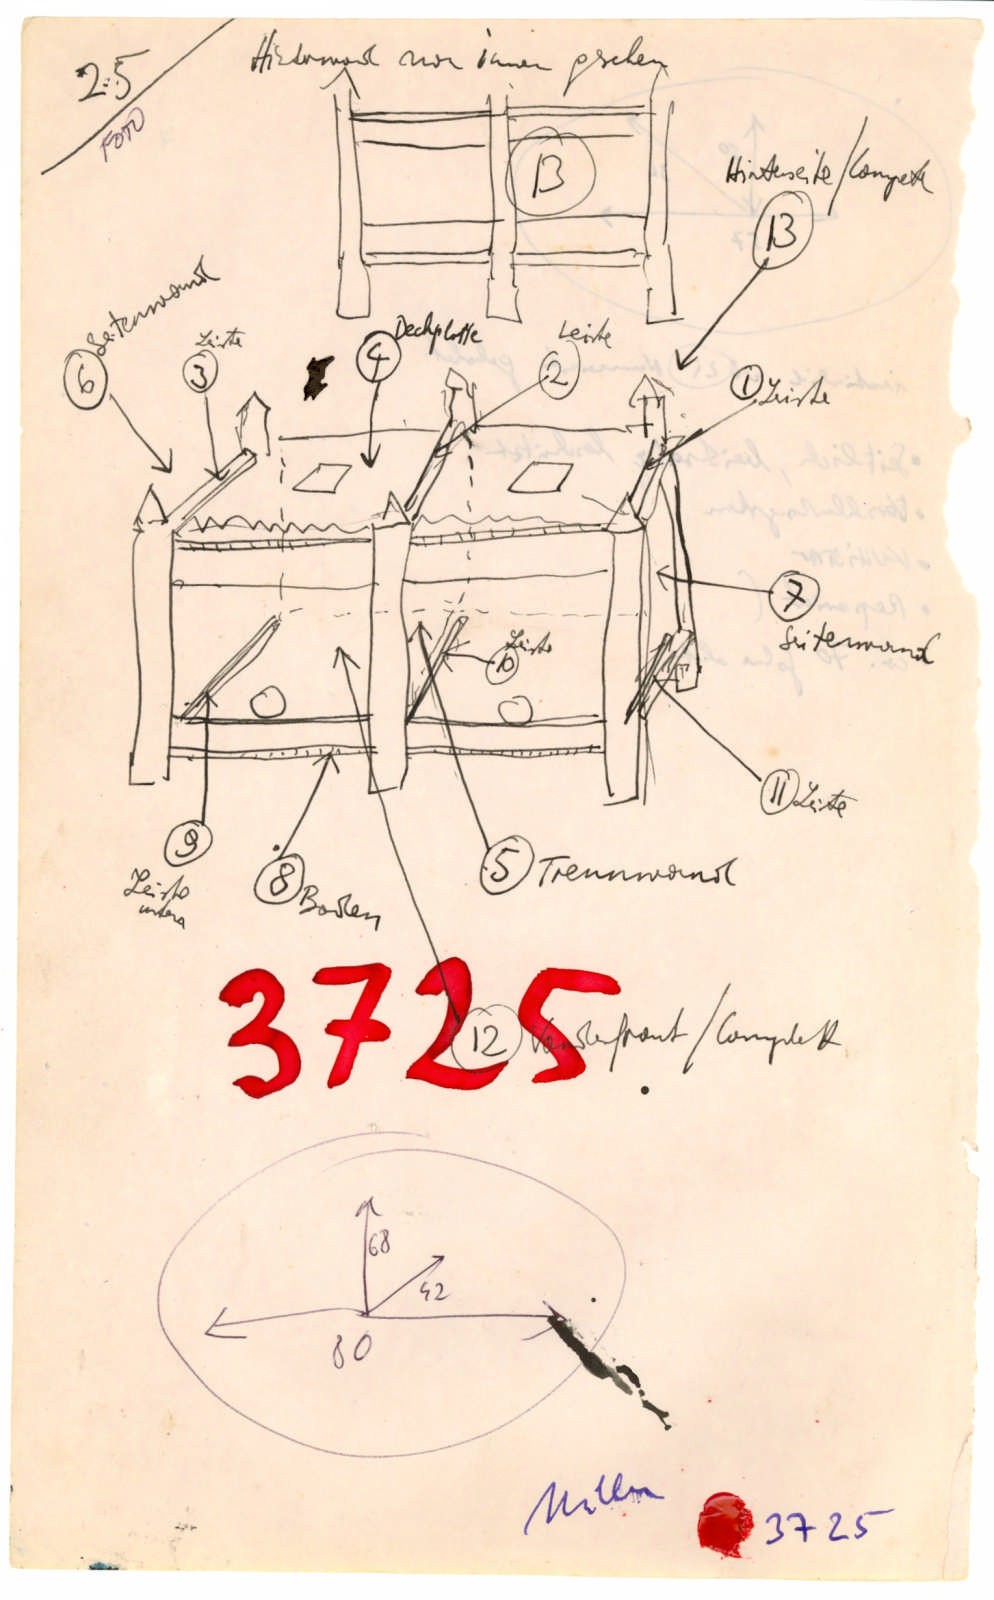 25
FOTO
Hinterwand von innen gesehen
13
Hinterseite/Complett
13
6 Seitenwand
3 Leiste
4 Deckplatte
2 Leiste
1 Leiste
7 Seitenwand
10 Leiste
11 Leiste
9 Leiste unten
8 Boden
5 Trennwand
3725
12 Vorderfront/Complett
68
42
80
3725